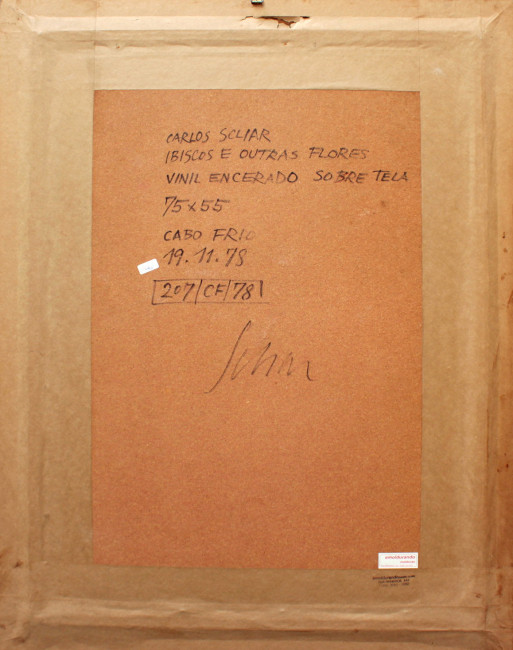 CARLOS SCLIAR
IBISCOS E OUTRAS FLORES
VINIL ENCERADO SOBRE TELA
75x55
CABO FRIO
19.11.78
207/CF/78
Scliar